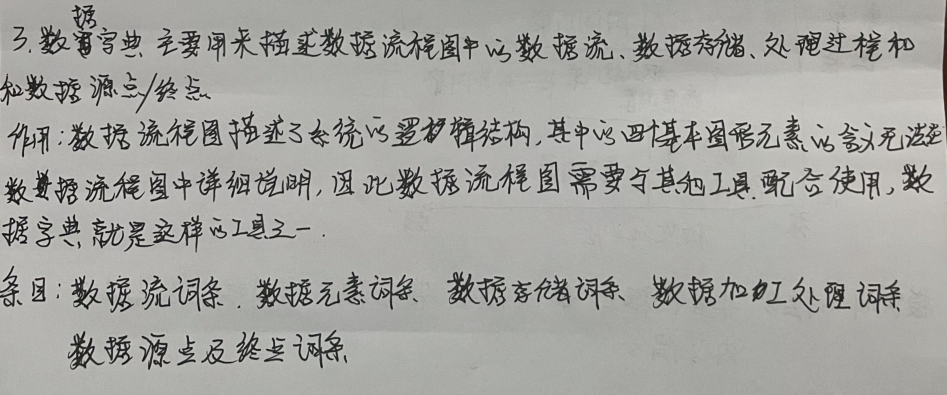 3.数据字典 主要用来描述数据流程图中的数据流、数据存储、处理过程和
和数据源点/终点
作用:数据流程图描述了系统的逻辑结构,其中的四个基本图形元素的含义无法在
数据流程图中详细说明,因此数据流程图需要与其他工具配合使用,数
据字典就是这样的工具之一.
条目:数据流词条.数据元素词条 数据存储词条 数据加工处理词条
数据源点及终点词条